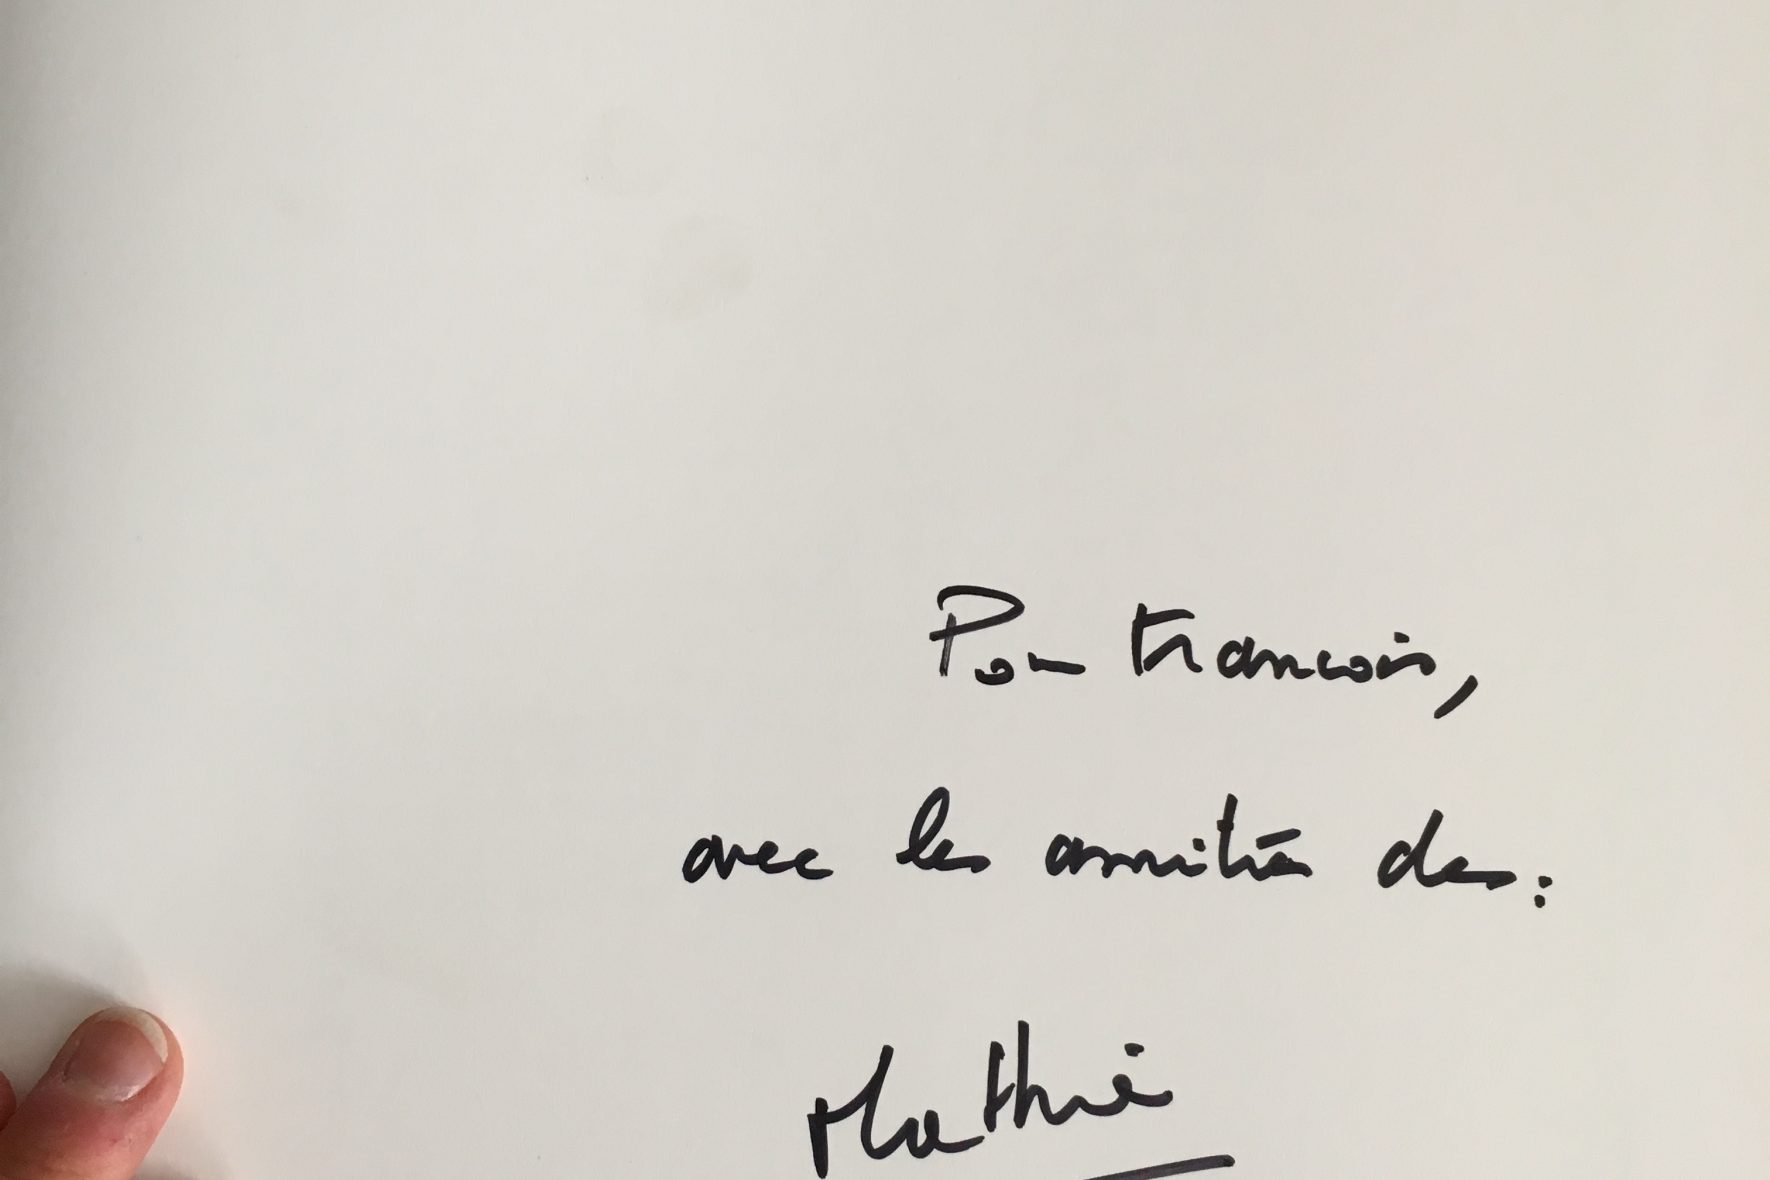 Pour Francois,
avec les amitiés de :
Mathieu